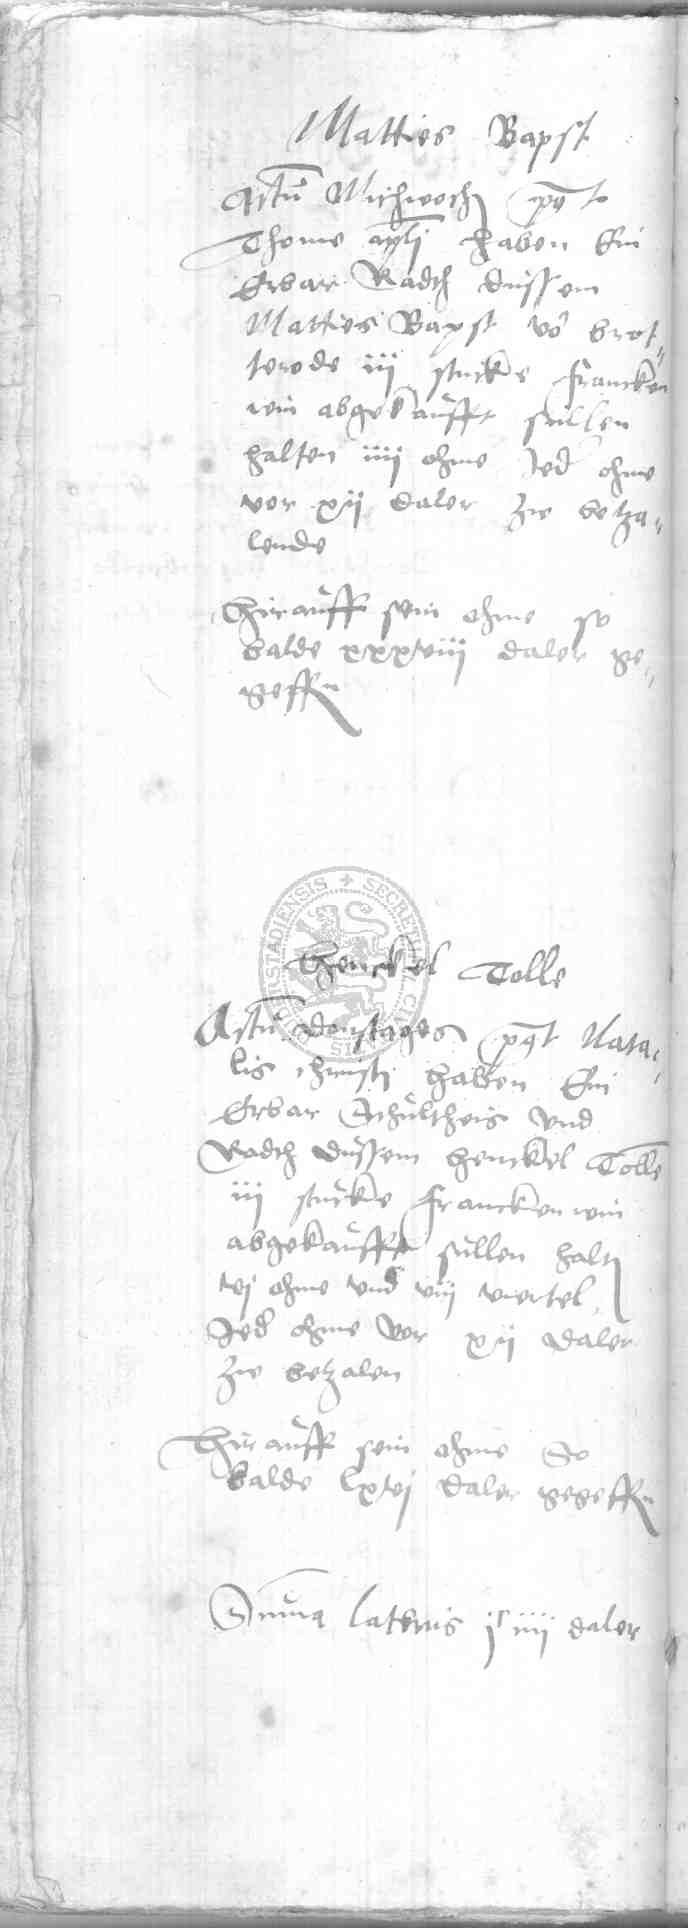 Matties Bapst
Actū Mithwoch pꝰ t
Thome apłi haben Ein
Erbar Radth dussem
Matties Bapst vō brot-
terode iij stucke francken
win abgekaufft sullen
halten iiij ohme Jed ohme
vor xij daler zu betza-
lende
Hirauff sein ohme so
balde xxxviij daler ge-
geffn
Henckel Tolle
Actū donstages pꝰt Nata-
lis christi haben Ein
Erbar Schultheis vnd
Radth dussem henckel Tolle
iij stucke francken win
abgekaufft sullen halt
vj ohme vnd viij viertel
Jed ohme vor xij daler
zu betzalen
Hirauff sein ohme So
balde lxvj daler gegeffn
Suma lateris jc iiij daler